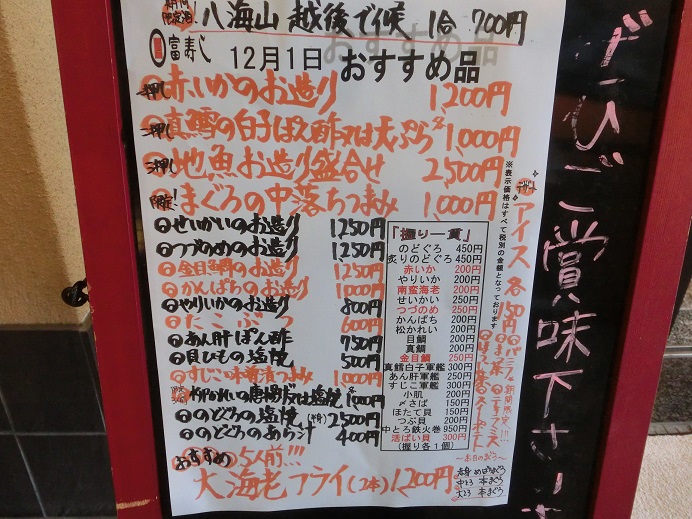 期間限定酒! 八海山 越後で候 1合 700円
富寿し 12月1日 おすすめ品
一押し 赤いかのお造り 1,200円
二押し 真鱈の白子ぽん酢又は天ぷら 1,000円
三押し 地魚お造り盛合せ 2,500円
限定! まぐろの中落ちつまみ 1,000円
せいかいのお造り 1250円
つづのめのお造り 1250円
金目鯛のお造り 1250円
かんぱちのお造り 1000円
やりいかのお造り 800円
たこぶつ 600円
あん肝ぽん酢 750円
貝ひもの塩焼 500円
すじこい味噌漬つまみ 1000円
柳かれいの唐揚又は塩焼 1,000円
のどぐろの塩焼(半身) 2500円
のどぐろのあら汁 400円
おすすめ 5人前!!!
大海老フライ(2本) 1,200円
「握り一貫」
のどぐろ 450円
炙りのどぐろ 450円
赤いか 200円
やりいか 200円
南蛮海老 200円
せいかい 250円
つづのめ 250円
かんぱち 200円
松かれい 200円
目鯛 200円
真鯛 200円
金目鯛 250円
真鱈白子軍艦 300円
あん肝軍艦 300円
すじこ軍艦 300円
小肌 200円
〆さば 150円
ほたて貝 150円
つぶ貝 200円
中とろ鉄火巻 950円
活ばい貝 300円
(握り各1個)
※表示価格はすべて税別の金額となっております
デザート アイス 各150円
バニラ
期間限定!!!
~本日のまぐろ~
赤身 めばちまぐろ
中とろ 本まぐろ
大とろ 本まぐろ
ぜひご賞味下さいませ